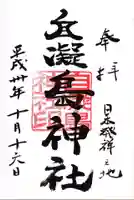 奉拝
日本發祥之地
自凝島神社
平成卅年十月十六日